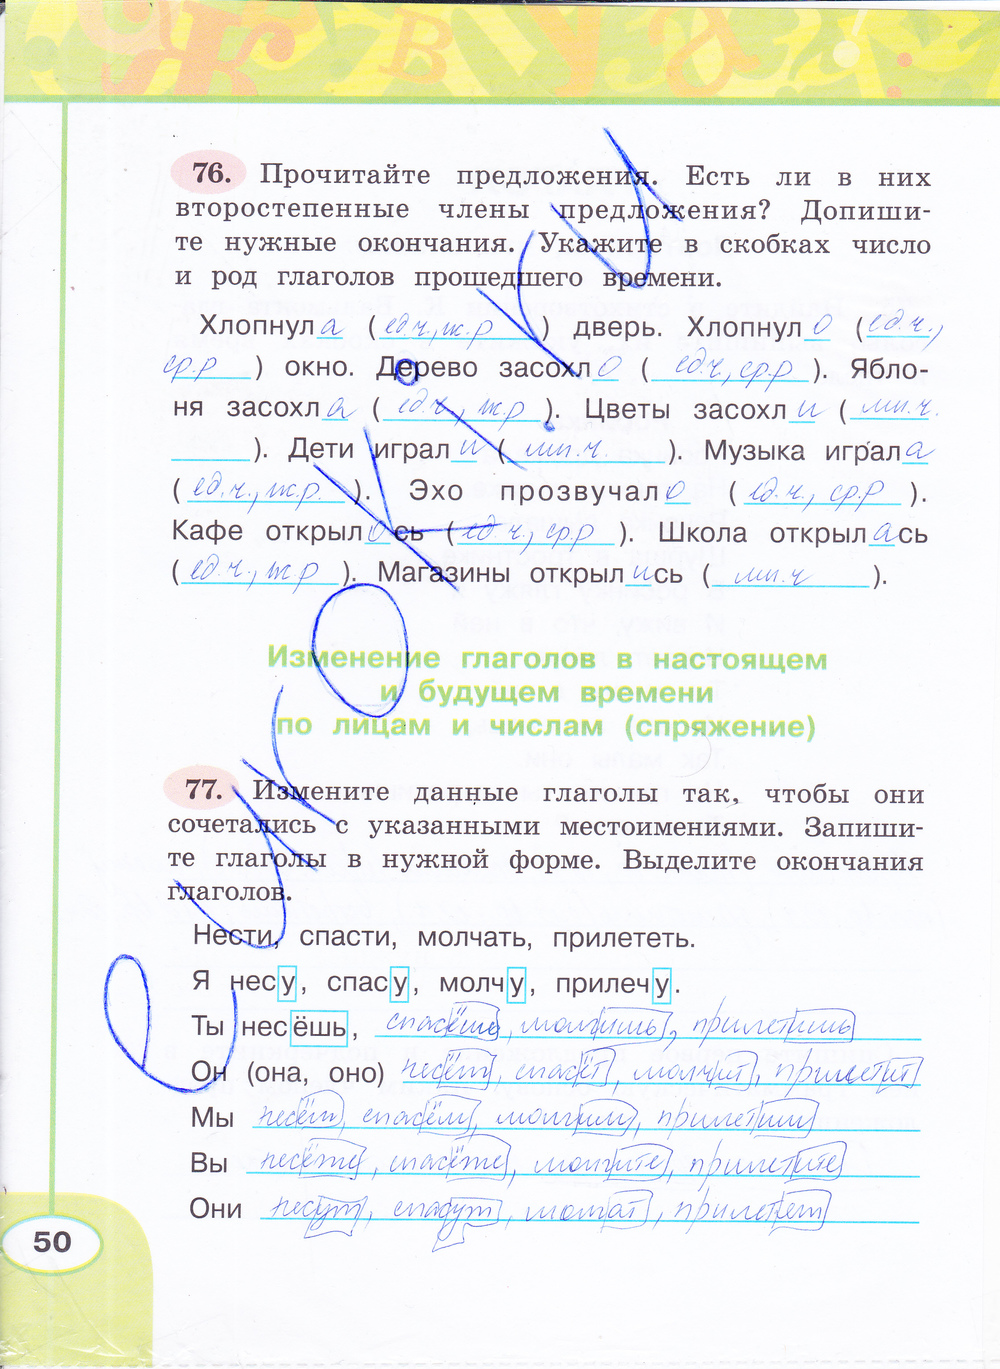 76. Прочитайте предложения. Есть ли в них
второстепенные члены предложения? Допиши-
те нужные окончания. Укажите в скобках число
и род глаголов прошедшего времени.
Хлопнула (ед.ч., ж.р) дверь. Хлопнуло (ед.ч.,
ср.р) окно. Дерево засохло (ед.ч., ср.р). Ябло-
ня засохла (ед.ч., ж.р). Цветы засохли (мн.ч.
). Дети играли (мн.ч.). Музыка играла
(ед.ч., ж.р.). Эхо прозвучало (ед.ч., ср.р).
Кафе открылось (ед.ч., ср.р). Школа открылась
(ед.ч., ж.р). Магазины открылись (мн.ч).
Изменение глаголов в настоящем
и будущем времени
по лицам и числам (спряжение)
77. Измените данные глаголы так, чтобы они
сочетались с указанными местоимениями. Запиши-
те глаголы в нужной форме. Выделите окончания
глаголов.
Нести, спасти, молчать, прилететь.
Я несу, спасу, молчу, прилечу.
Ты несёшь, спасёшь, молчишь, прилетишь
Он (она, оно) несёт, спасёт, молчит, прилетит
Мы несём, спасём, молчим, прилетим
Вы несёте, спасёте, молчите, прилетите
Они несут, спасут, молчат, прилетят
50